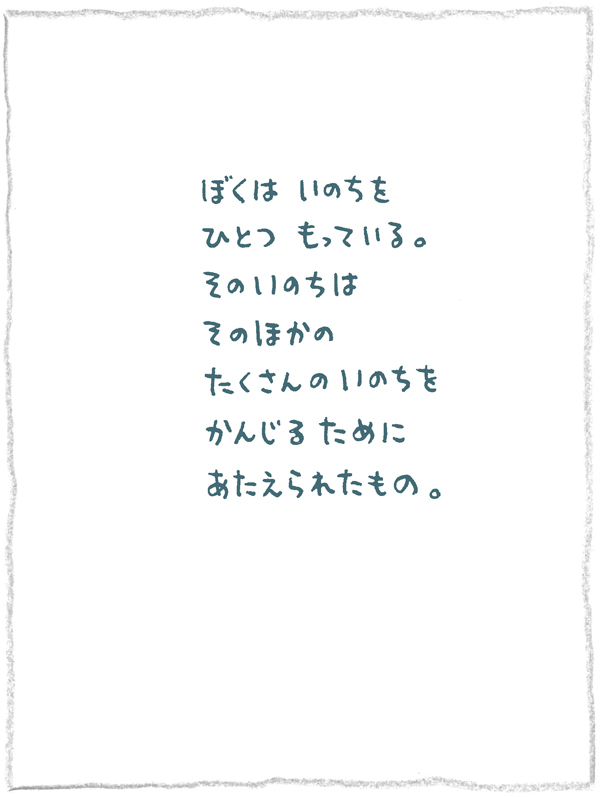 ぼくは いのちを
ひとつ もっている。
そのいのちは
そのほかの
たくさんの いのちを
かんじる ために
あたえられたもの。